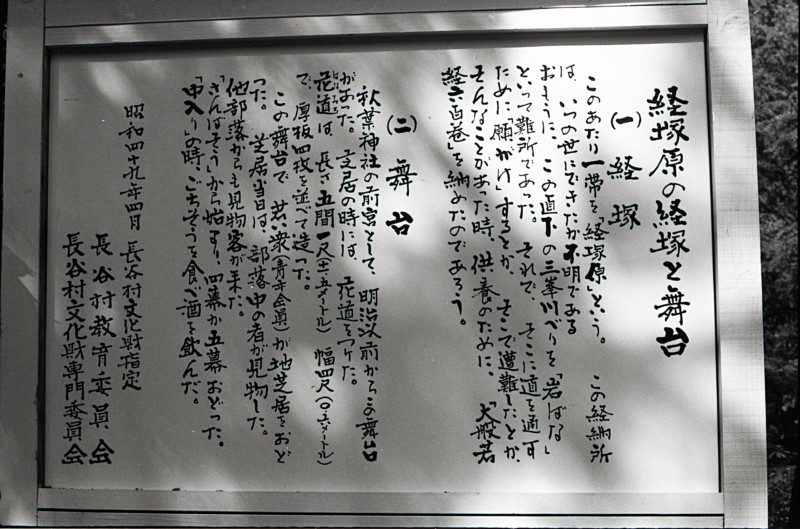 経塚原の経塚と舞台
(一) 経塚
このあたり一帯を「経塚原」という。 この経納所
は、いつの世にできたか不明である
おもうに、この直下の三峯川べりを「岩ばな」
といって難所であった。それで、そこに道を通す
ために「願がけ」するとか、そこで遭難したとか、
そんなことがあった時、供養のために、「大般若
経六百巻」を納めたのであろう。
(二) 舞台
秋葉神社の前宮として、明治以前からこの舞台
があった。芝居の時には、花道をつけた。
花道は、長さ五間一尺 幅四尺
で、厚板四枚を並べて造った。
この舞台で、若い衆(青年会員)が地芝居をおど
った。 芝居当日は、部落中の者が見物した。
他部落からも見物客が来た。
「さんばそう」から始まり、四幕か五幕おどった。
「中入り」の時、ごちそうを食べ酒を飲んだ。
昭和四十九年四月 長谷村文化財指定
長谷村教育委員会
長谷村文化財専門委員会